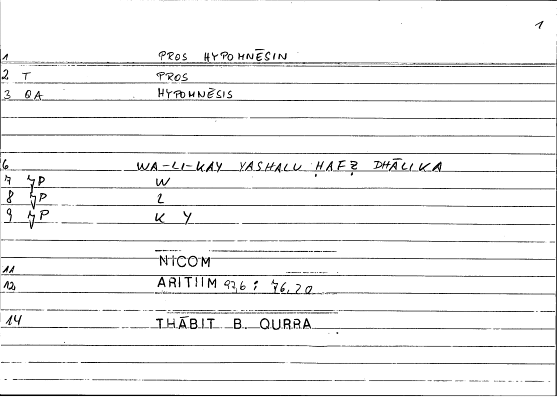 1
1 PROS HYPOMNĒSIN
2 T PROS
3 QA HYPOMNĒSIS
6 WA-LI-KAY YASHALU ḤAFẒ DHĀLIKA
7 P W
8 P L
9 P K Y
NICOM
11
12 ARITIIM 92,6 : 76,20
14 THĀBIT B. QURRA